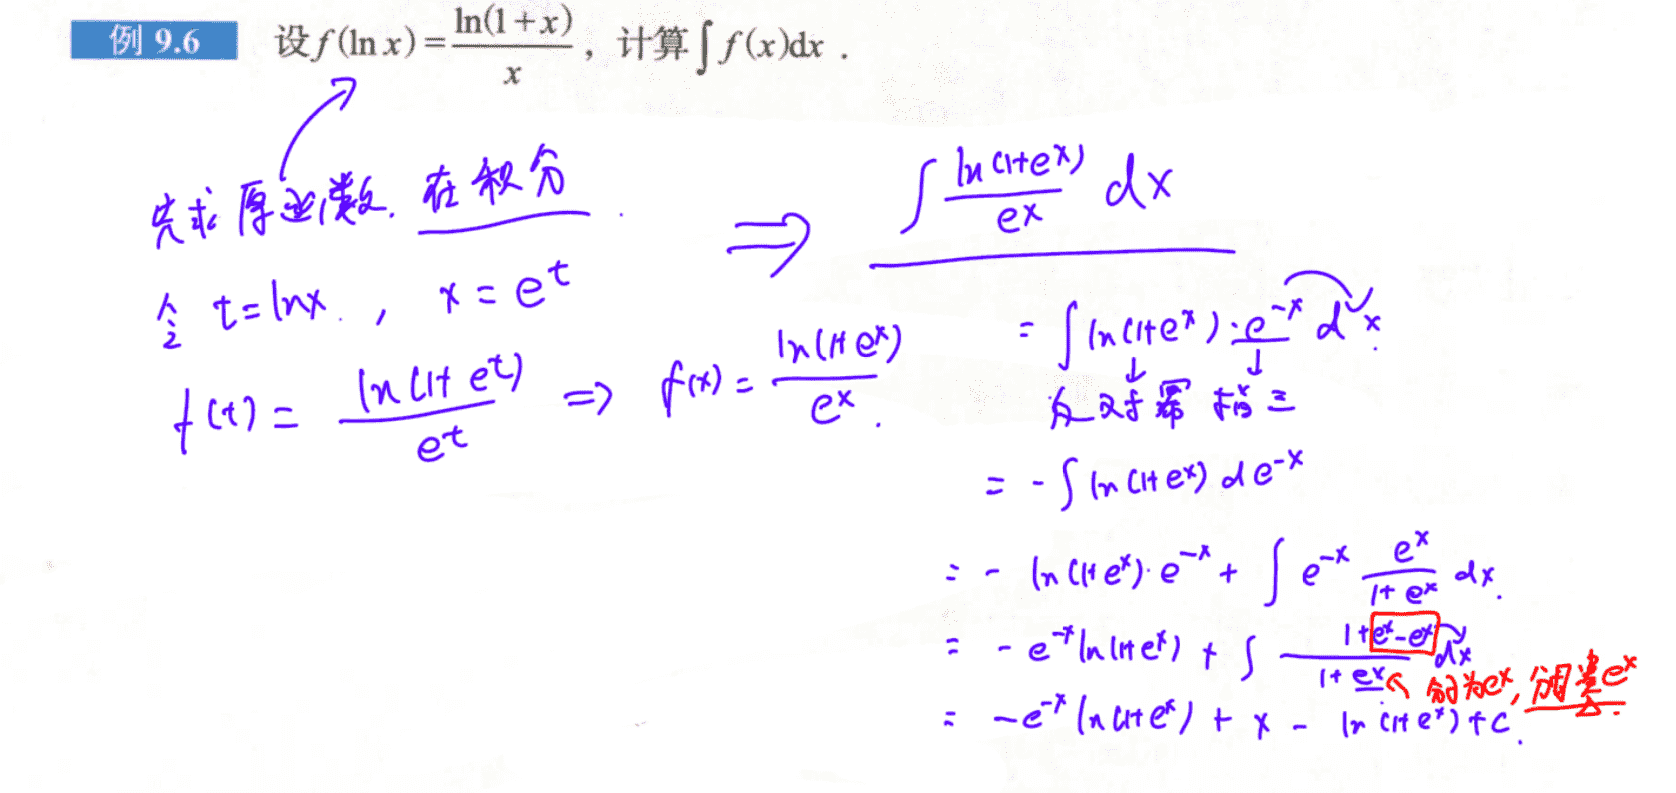 例 9.6 设f(ln x)=ln(1+x)/x，计算∫f(x)dx．
先求原函数.在积分.
令 t=lnx., x=e^t
f(t)=ln(1+e^t)/e^t ⇒ f(x)=ln(1+e^x)/e^x.
⇒ ∫ln(1+e^x)/e^x dx
=∫ln(1+e^x)·e^-x dx.
反对幂 指三
=-∫ln(1+e^x)de^-x
=-ln(1+e^x)·e^-x+∫e^-x e^x/(1+e^x) dx.
=-e^-x ln(1+e^x)+∫(1+e^x-e^x)/(1+e^x) dx
为e^x, 分母差e^x
=-e^-x ln(1+e^x)+x-ln(1+e^x)+c.